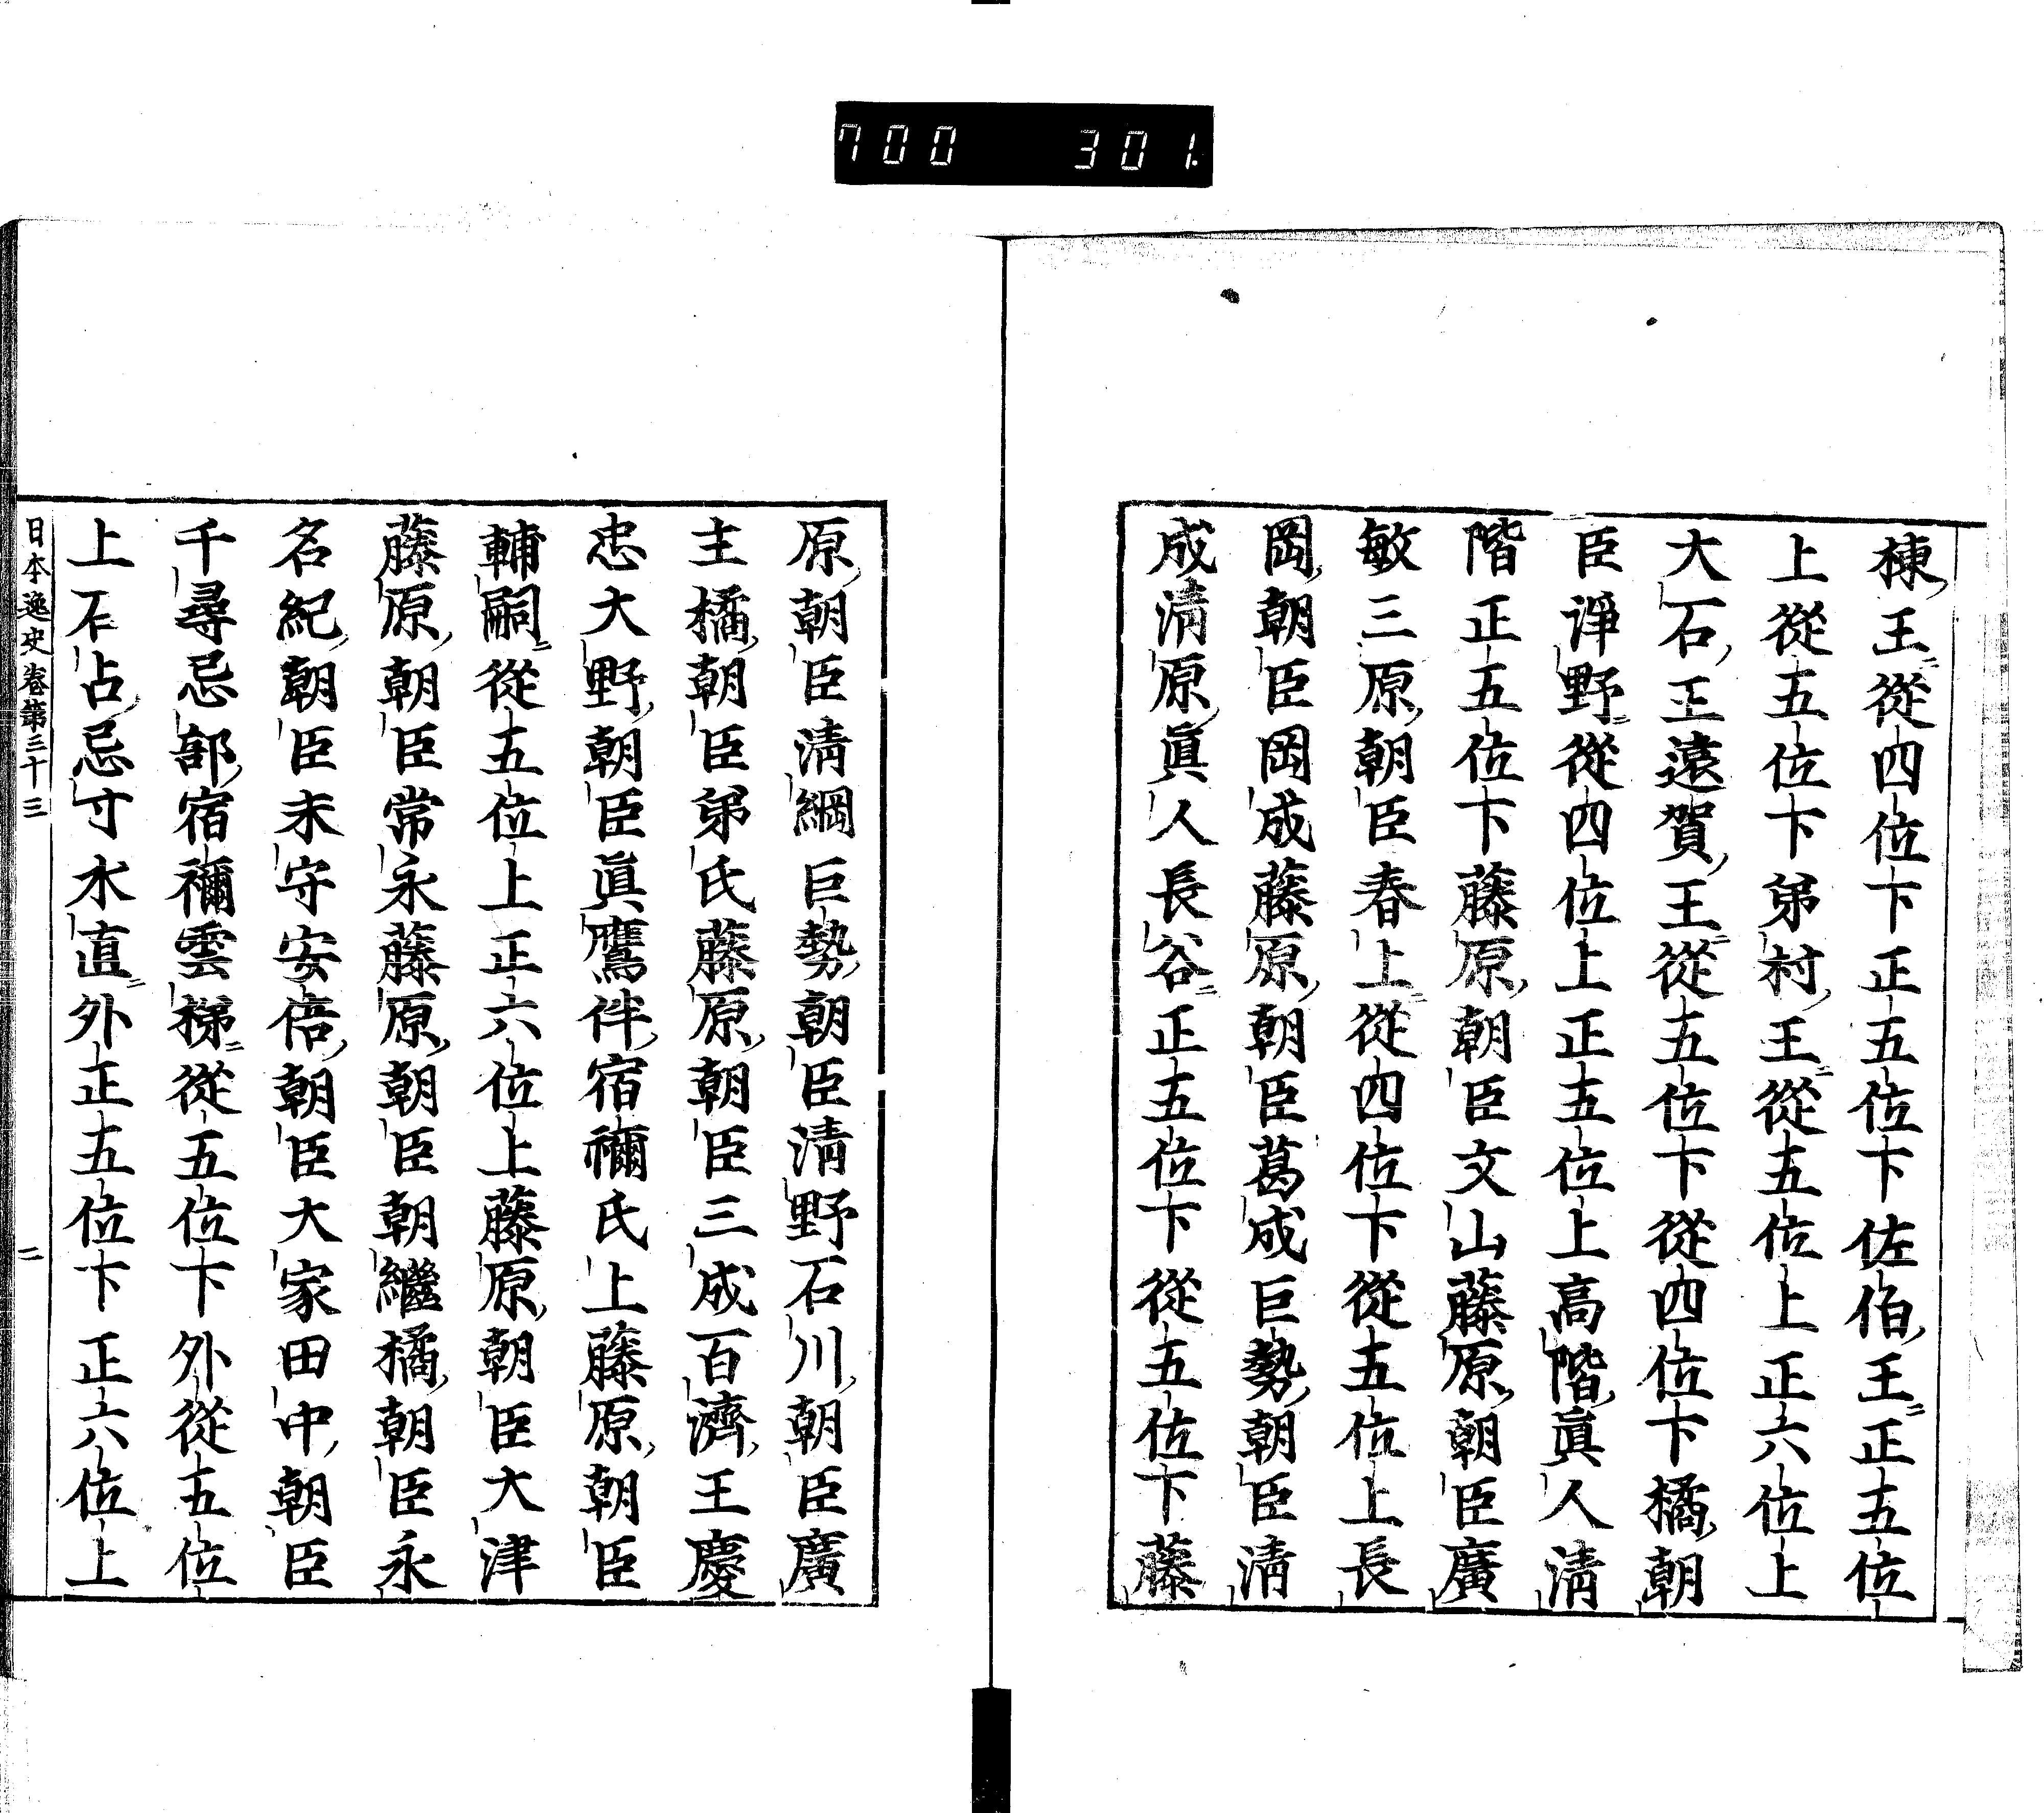 700 301.
棟王從四位下正五位下佐伯王正五位
上從五位下弟村王從五位上正六位上
大石王遠賀王從五位下從四位下橘朝
臣諍野從四位上正五位上高階眞人淸
階正五位下藤原朝臣文山藤原朝臣廣
敏三原朝臣春上從四位下從五位上長
岡朝臣岡成藤原朝臣葛成巨勢朝臣淸
成淸原眞人長谷正五位下從五位下藤
原朝臣淸綱巨勢朝臣淸野石川朝臣廣
主橘朝臣弟氏藤原朝臣三成百濟王慶
忠大野朝臣眞鷹伴宿禰氏上藤原朝臣
輔嗣從五位上正六位上藤原朝臣大津
藤原朝臣常永藤原朝臣朝繼橘朝臣永
名紀朝臣末守安倍朝臣大家田中朝臣
千尋忌部宿禰雲梯從五位下外從五位
上石占忌寸水直外正五位下正六位上
日本逸史卷第三十三 二